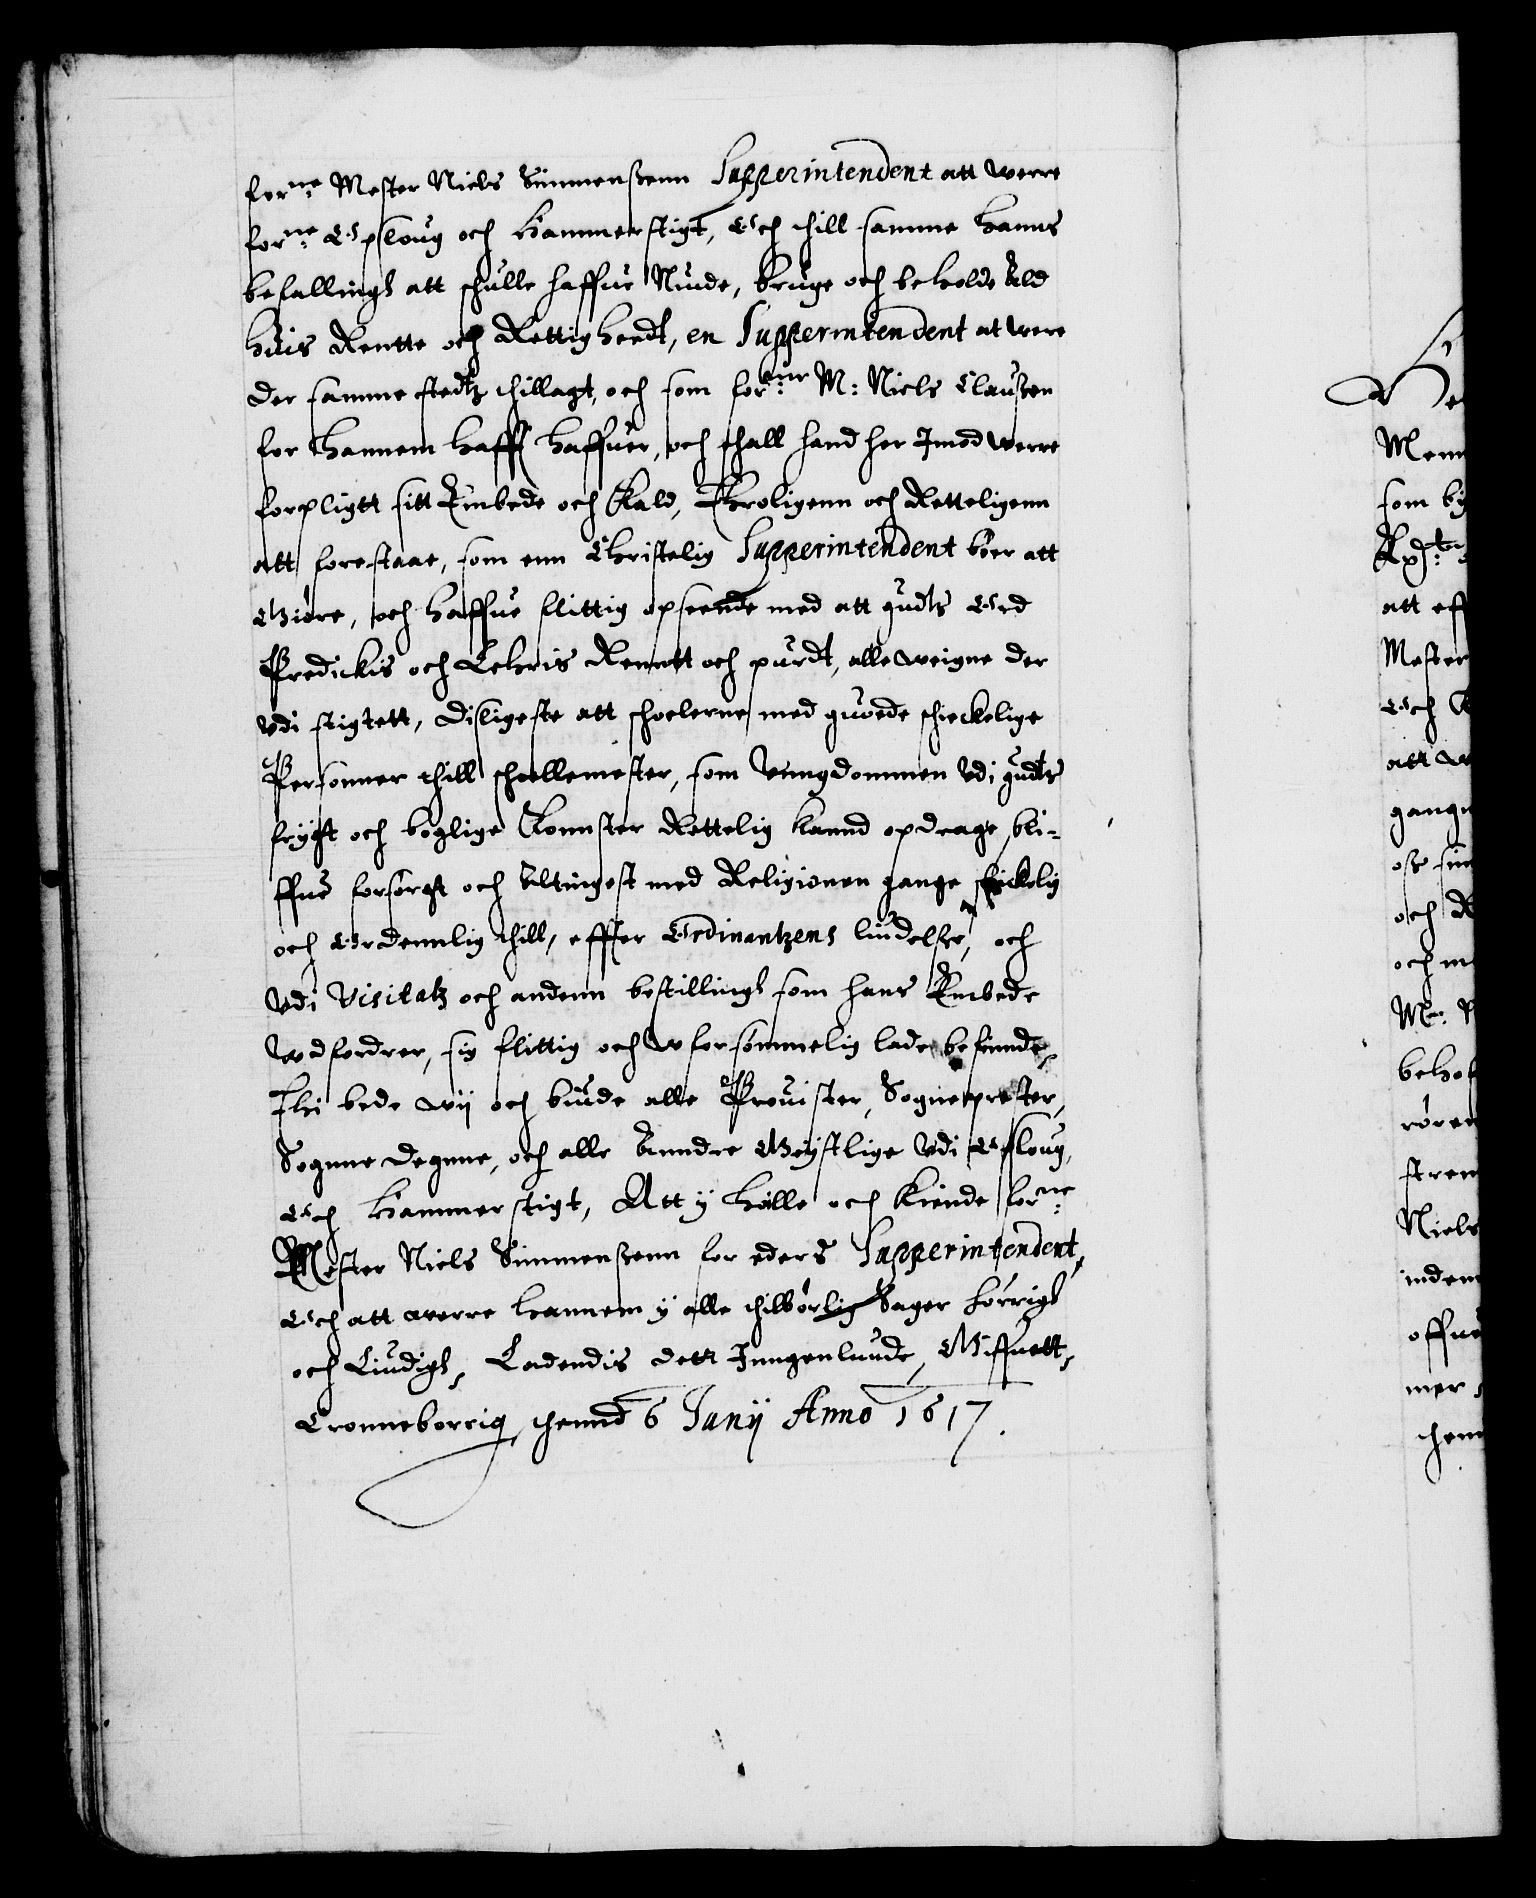 forne: Mester Niels Simmenssenn Supperintendent att werre
forne: Opsloug och Hammerstigt, Och thill samme hanns
befallingh att schulle haffue Niude, bruge och beholde Ald
huis Rentte och Rettigheedt, en Supperintendent at were
der samme stedtz thillagt, och som forne: M: Niels Claussen
for hannem hafft haffuer, och schall hand her Imod werre
forpligtt sitt Embede och Kald, Throligenn och Retteligenn
att forestaae, som enn Christelig Supperintendent bøer att
Giøre, och haffue flittig opseende med att gudts Ord
Predickis och Lehris Renntt och purdt, alleweigne der
vdi stigtett, disligeste att scholerne med guoede schickelige
Personner thill schollemester, som Vungdommen vdi gudts
frygt och boglige Konnster Rettelig kannd opdrage, bli-
ffue forsørgt och Altingest med Religionen gange schickelig
och Ordennlig thill, effter Ordinantzens liudelsse, och
vdi Visitatz och andenn bestillingh som hans Embede
wdfordrer, sig flittig och wforsømmelig lade befinde,
Thi bede wij och biude alle Prouister, Sogneprester,
Sognne degnne, och alle Anndre Gejstlige vdi Opsloug,
Och Hammerstigt, Att y holle och kiende forne:
Mester Niels Simmenssenn for eders Supperintendent,
Och att werre hannem y alle thilbørlig Sager hørrigh
och Liudigh, Ladendis dett Inngenlunde, Giffuett,
Cronneborrig, thennd 6 Junij Anno 1617.
Menn
som
att eff
Mester
Och
att w
gangn
och
och m
beho
røre
stren
Niels
inden
offue
mer
thenn